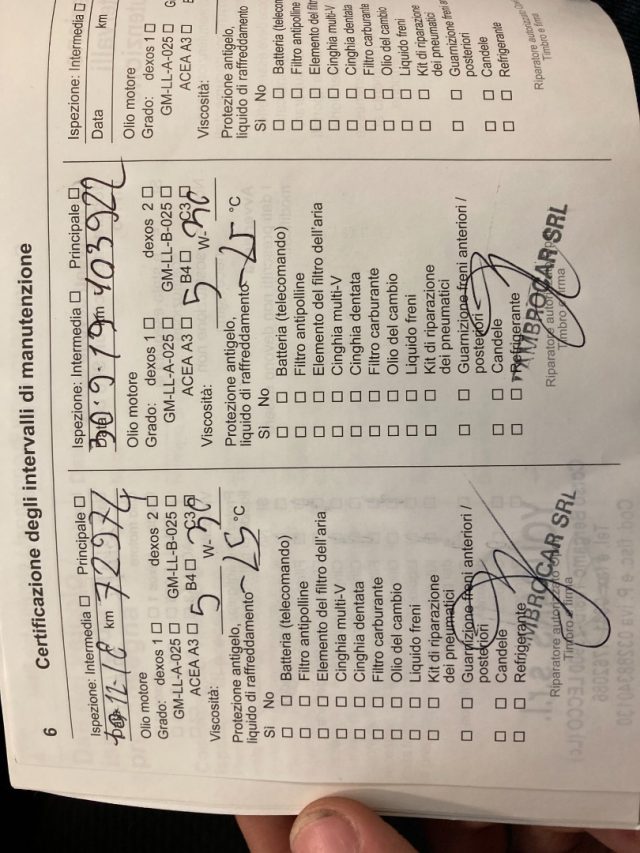 6
Certificazione degli intervalli di manutenzione
Ispezione: Intermedia Principale
12-18 km 72971
Olio motore
Grado: dexos 1 dexos 2
GM-LL-A-025 GM-LL-B-025
ACEA A3 B4 C3
Viscosità: 5 W- 30
Protezione antigelo,
liquido di raffreddamento -25 °C
Sì No
Batteria (telecomando)
Filtro antipolline
Elemento del filtro dell'aria
Cinghia multi-V
Cinghia dentata
Filtro carburante
Olio del cambio
Liquido freni
Kit di riparazione
dei pneumatici
Guarnizione freni anteriori /
posteriori
Candele
Refrigerante
AMBROCAR SRL
Riparatore autorizzato
Timbro e firma
Ispezione: Intermedia Principale
Data 30.9.19 km 103922
Olio motore
Grado: dexos 1 dexos 2
GM-LL-A-025 GM-LL-B-025
ACEA A3 B4 C3
Viscosità: 5 W- 30
Protezione antigelo,
liquido di raffreddamento -25 °C
Sì No
Batteria (telecomando)
Filtro antipolline
Elemento del filtro dell'aria
Cinghia multi-V
Cinghia dentata
Filtro carburante
Olio del cambio
Liquido freni
Kit di riparazione
dei pneumatici
Guarnizione freni anteriori /
posteriori
Candele
Refrigerante
AMBROCAR SRL
Riparatore autorizzato
Timbro e firma
Ispezione: Intermedia
Data km
Olio motore
Grado: dexos 1
GM-LL-A-025
ACEA A3
Viscosità:
Protezione antigelo,
liquido di raffreddamento
Sì No
Batteria (telecom
Filtro antipolline
Elemento del filt
Cinghia multi-V
Cinghia dentata
Filtro carburante
Olio del cambio
Liquido freni
Kit di riparazione
dei pneumatici
Guarnizione freni an
posteriori
Candele
Refrigerante
Riparatore autorizzato
Timbro e firm